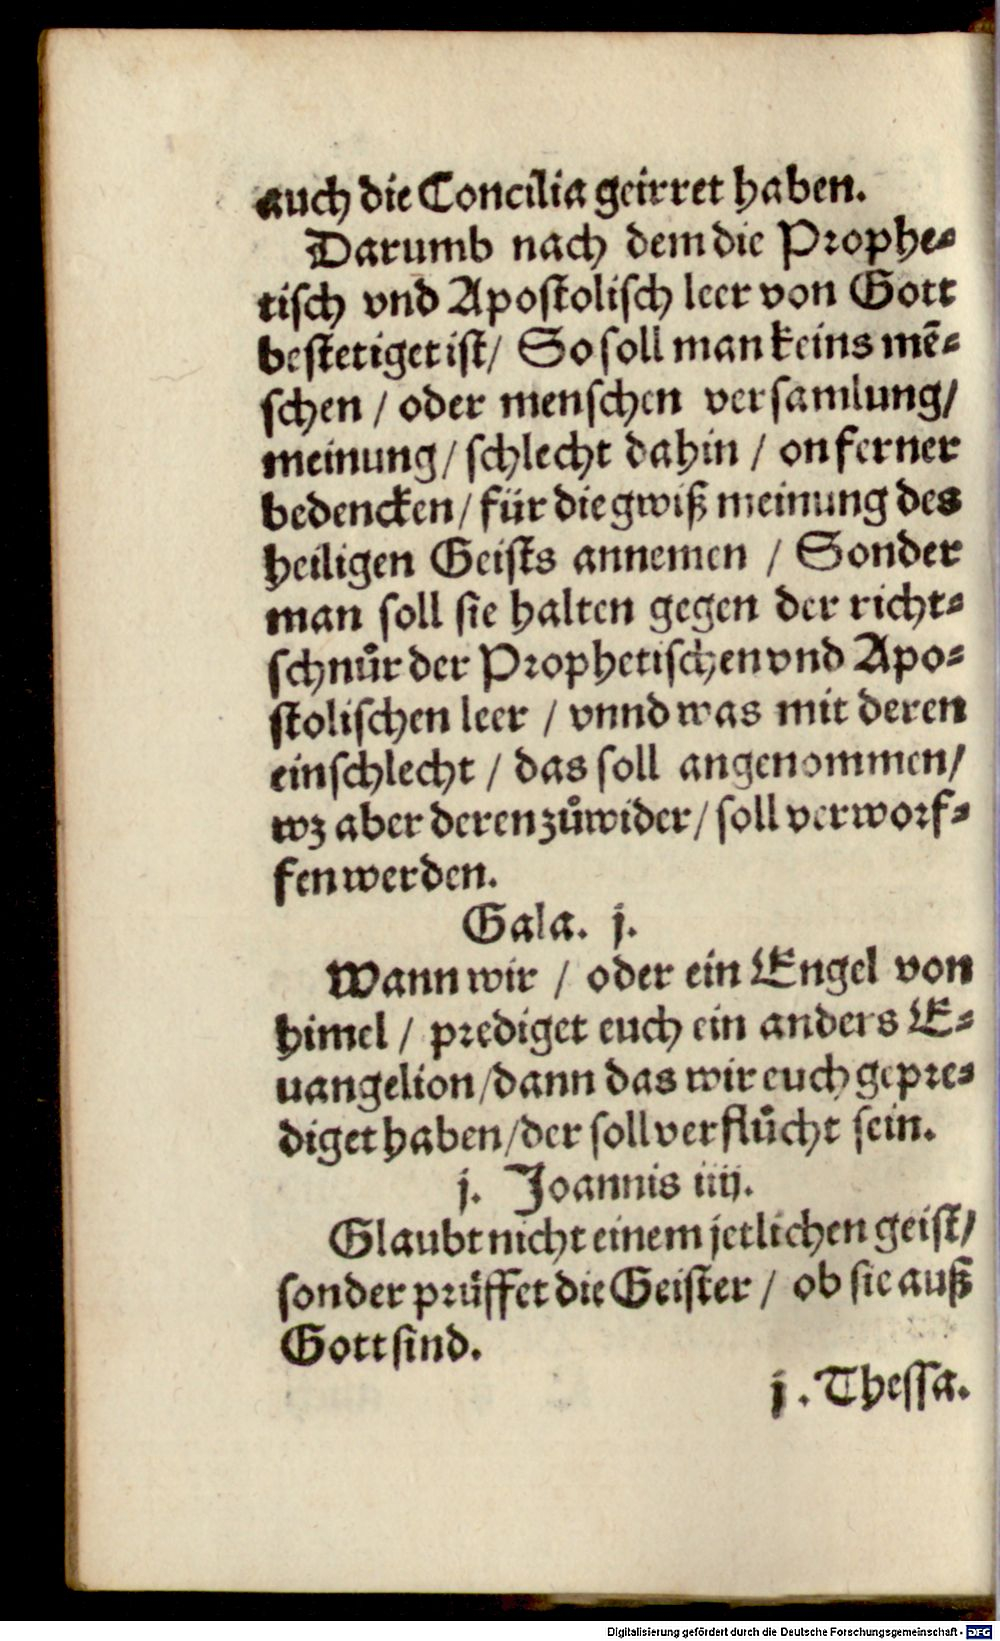 auch die Concilia geirret haben.
Darumb nach dem die Prophe⸗
tisch vnd Apostolisch leer von Gott
bestetiget ist/ So soll man keins mẽ⸗
schen / oder menschen versamlung/
meinung/ schlecht dahin / on ferner
bedencken/ für die gwiß meinung des
heiligen Geists annemen / Sonder
man soll sie halten gegen der richt⸗
schnůr der Prophetischen vnd Apo⸗
stolischen leer / vnnd was mit deren
einschlecht / das soll angenommen/
wz aber deren zůwider/ soll verworf⸗
fen werden.
Gala. j.
Wann wir / oder ein Engel von
himel / prediget euch ein anders E⸗
uangelion/dann das wir euch gepre⸗
diget haben/der soll verflůcht sein.
j. Joannis iiij.
Glaubt nicht einem jetlichen geist/
sonder prüffet die Geister / ob sie auß
Gott sind.
j. Thessa.
Digitalisierung gefördert durch die Deutsche Forschungsgemeinschaft - DFG